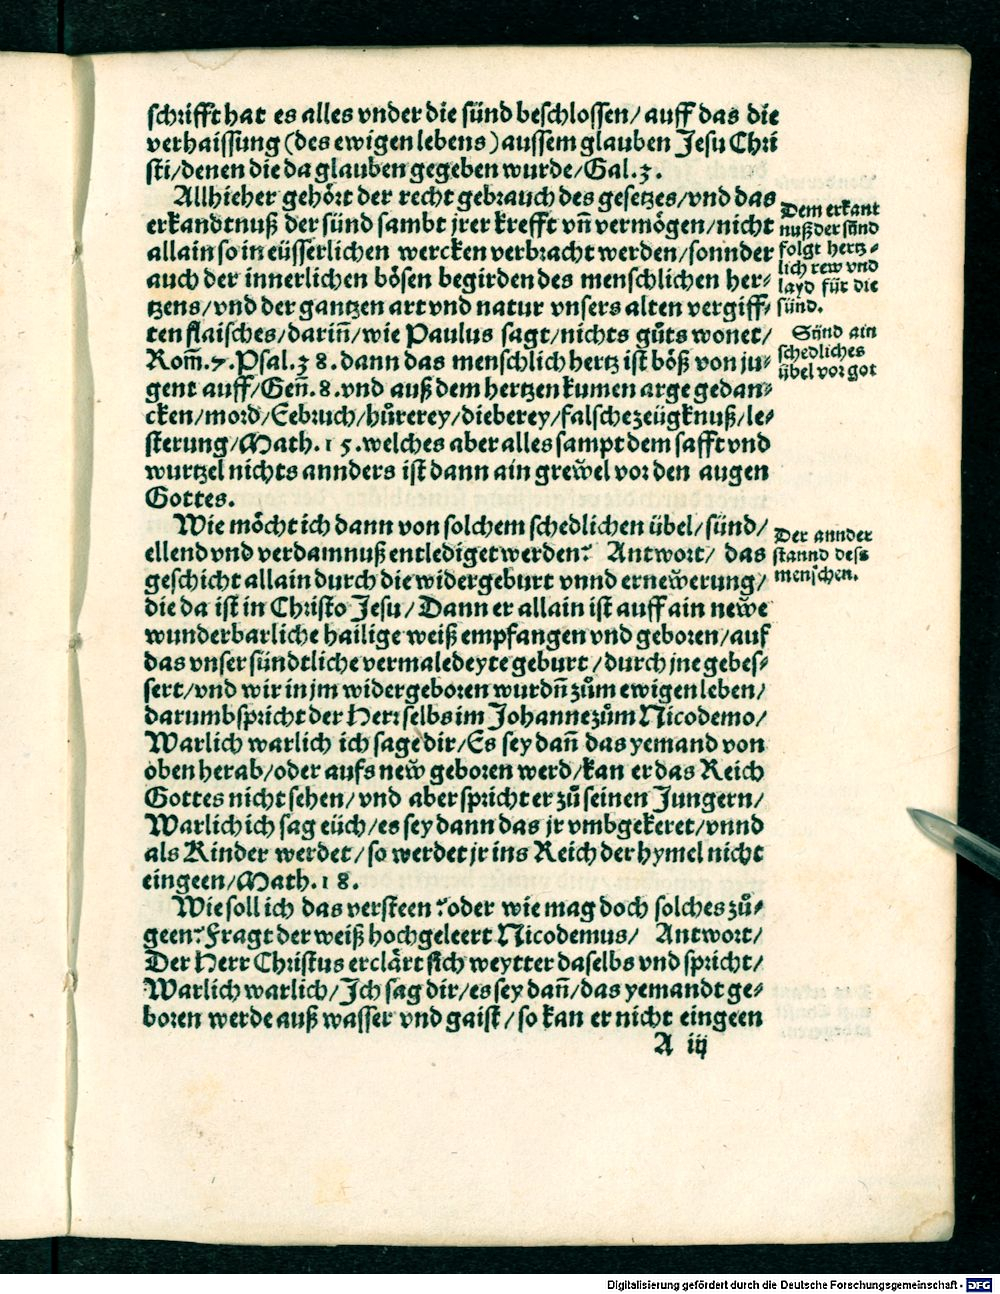 schrifft hat es alles vnder die sünd beschlossen/ auff das die
verhaissung (des ewigen lebens) aussem glauben Jesu Chri
sti/denen die da glauben gegeben wurde/Gal.3.
Allhieher gehört der recht gebrauch des gesetzes/vnd das
erkandtnuß der sünd sambt jrer krefft vñ vermögen/nicht
allain so in eüsserlichen wercken verbracht werden/sonnder
auch der innerlichen bösen begirden des menschlichen her-
tzens/vnd der gantzen art vnd natur vnsers alten vergiff-
ten flaisches/dariñ/wie Paulus sagt/nichts gůts wonet/
Rom̃.7.Psal.38.dann das menschlich hertz ist böß von ju-
gent auff/Geñ.8.vnd auß dem hertzen kumen arge gedan-
cken/mord/Eebruch/hůrerey/dieberey/falsche zeügknuß/le-
sterung/Math.15.welches aber alles sampt dem safft vnd
wurtzel nichts annders ist dann ain grewel vor den augen
Gottes.
Wie möcht ich dann von solchem schedlichen übel/sünd/
ellend vnd verdamnuß entlediget werden? Antwort/ das
geschicht allain durch die widergeburt vnnd ernewerung/
die da ist in Christo Jesu/ Dann er allain ist auff ain newe
wunderbarliche hailige weiß empfangen vnd geboren/auf
das vnser sündtliche vermaledeyte geburt/durch jne gebes-
sert/vnd wir in jm widergeboren wurdñ zům ewigen leben/
darumb spricht der Herr selbs im Johanne zům Nicodemo/
Warlich warlich ich sage dir/Es sey dañ das yemand von
oben herab/oder aufs new geboren werd/kan er das Reich
Gottes nicht sehen/ vnd aber spricht er zů seinen Jungern/
Warlich ich sag eüch/es sey dann das jr vmbgekeret/vnnd
als Kinder werdet/so werdet jr ins Reich der hymel nicht
eingeen/Math.18.
Wie soll ich das versteen? oder wie mag doch solches zů-
geen? Fragt der weiß hochgeleert Nicodemus/ Antwort/
Der Herr Christus erclärt sich weytter daselbs vnd spricht/
Warlich warlich/Ich sag dir/es sey dañ/das yemandt ge-
boren werde auß wasser vnd gaist/so kan er nicht eingeen
A iij
Dem erkant
nuß der sünd
folgt hertz-
lich rew vnd
layd für die
sünd.
Sünd ain
schedliches
übel vor got
Der annder
stannd des
menschen.
Digitalisierung gefördert durch die Deutsche Forschungsgemeinschaft - DFG